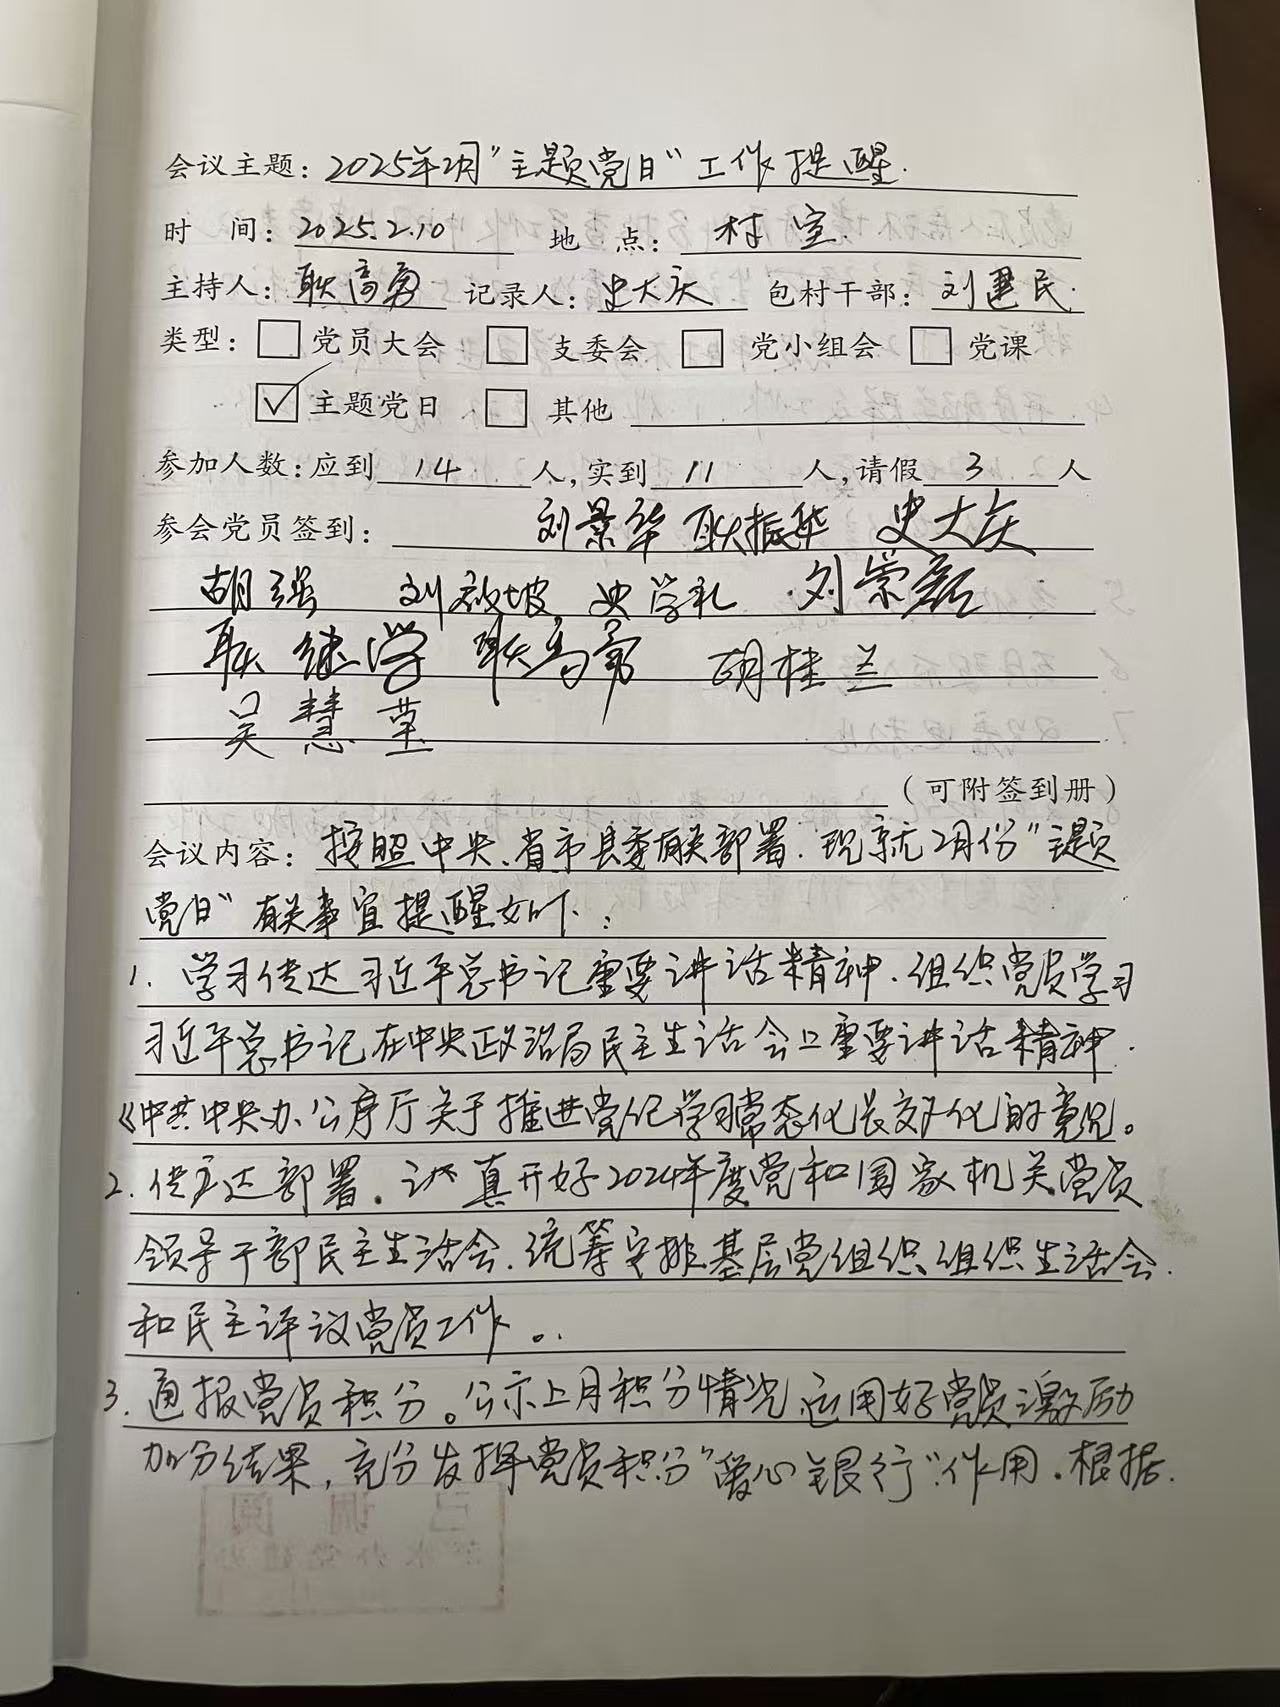 会议主题：2025年2月“主题党日”工作提醒.
时 间：2025.2.10 地 点：村室
主持人：耿高勇 记录人：史大庆 包村干部：刘建民
类型：□党员大会 □支委会 □党小组会 □党课
☑主题党日 □其他
参加人数：应到 14 人，实到 11 人，请假 3 人
参会党员签到：刘景华 耿振华 史大庆
胡强 刘敬坡 史学礼 刘崇
耿继学 耿高勇 胡桂兰
吴慧
（可附签到册）
会议内容：按照中央、省市县委有关部署.现就2月份“主题
党日”有关事宜提醒如下：
1. 学习传达习近平总书记重要讲话精神.组织党员学习
习近平总书记在中央政治局民主生活会上重要讲话精神.
《中共中央办公厅关于推进党纪学习常态化长效化的意见。
2. 传达部署.认真开好2024年度党和国家机关党员
领导干部民主生活会.统筹安排基层党组织组织生活会.
和民主评议党员工作。
3. 通报党员积分。公示上月积分情况.运用好党员激励
加分结果，充分发挥党员积分“爱心银行”作用.根据.
已调阅